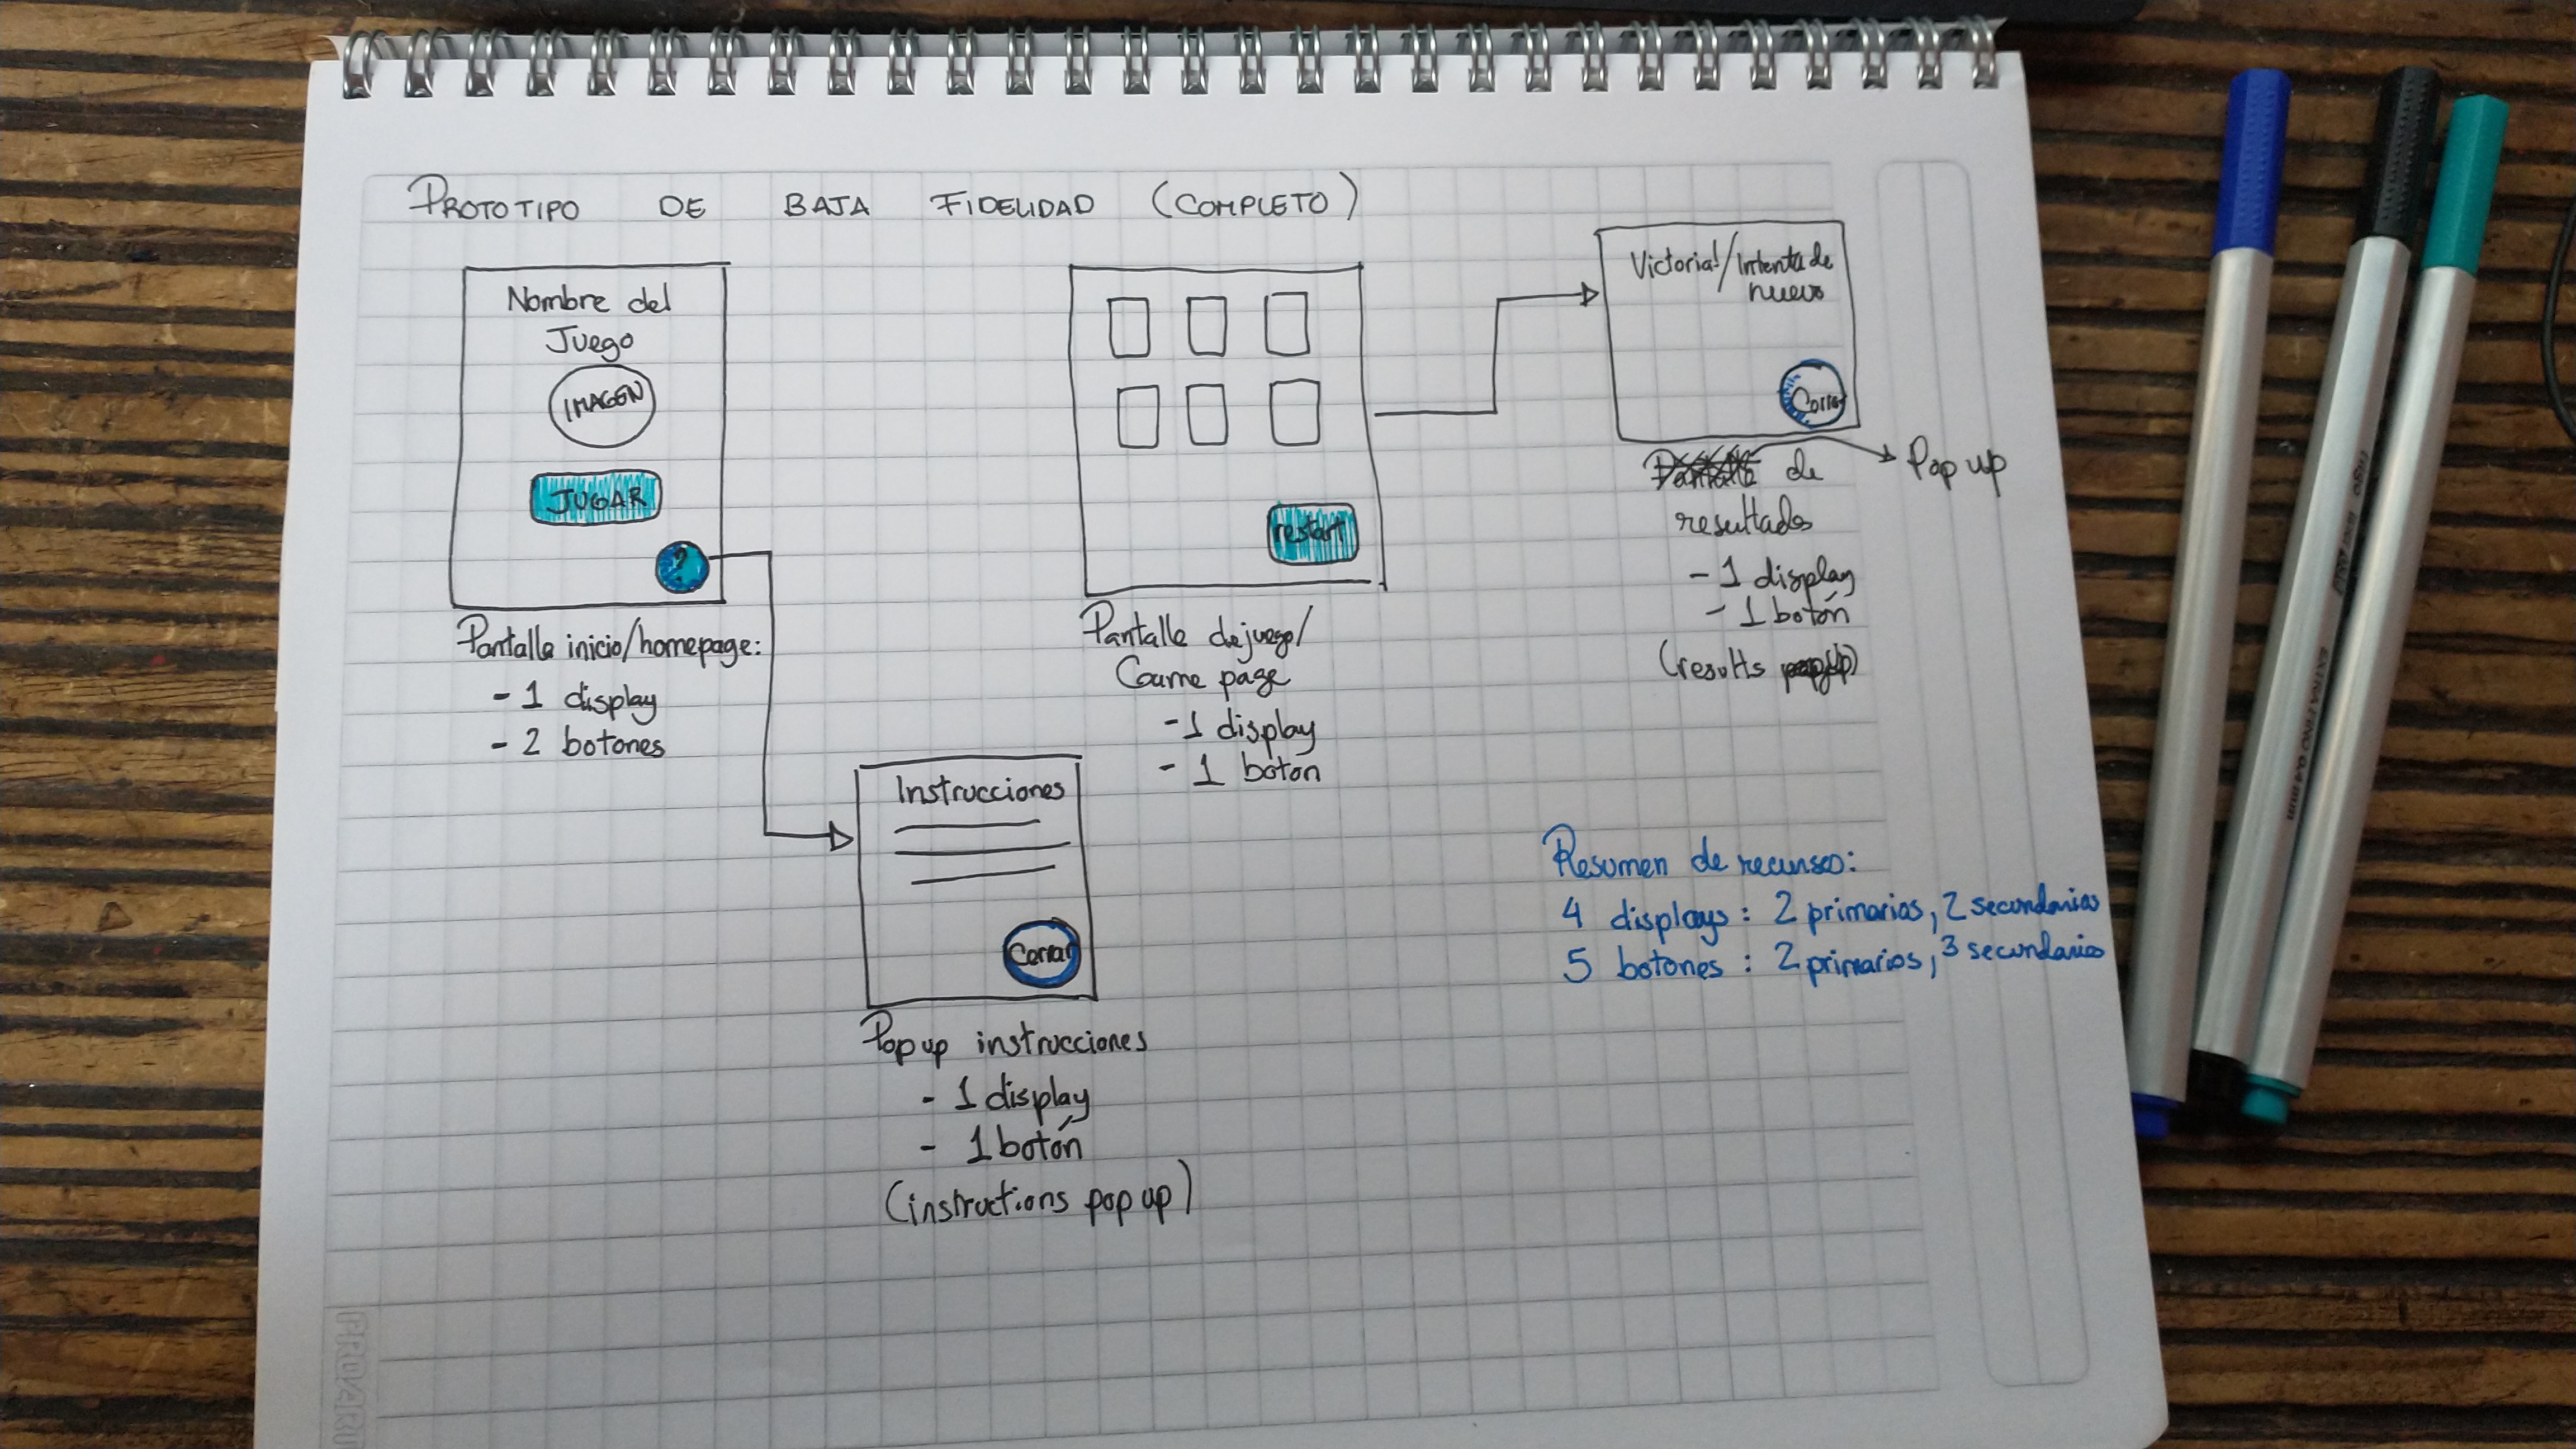 PROTOTIPO DE BAJA FIDELIDAD (COMPLETO)
Nombre del
Juego
IMAGEN
JUGAR
?
Pantalla inicio/homepage:
- 1 display
- 2 botones
Instrucciones
Cerrar
Pop up instrucciones
- 1 display
- 1 botón
(instructions pop up)
restart
Pantalla de juego/
Game page
- 1 display
- 1 boton
Victoria!/Intenta de
nuevo
Cerrar
Pantalla de
resultados
Pop up
- 1 display
- 1 botón
(results pop up)
Resumen de recurso:
4 displays: 2 primarios, 2 secundarios
5 botones: 2 primarios, 3 secundarios
PROARTE